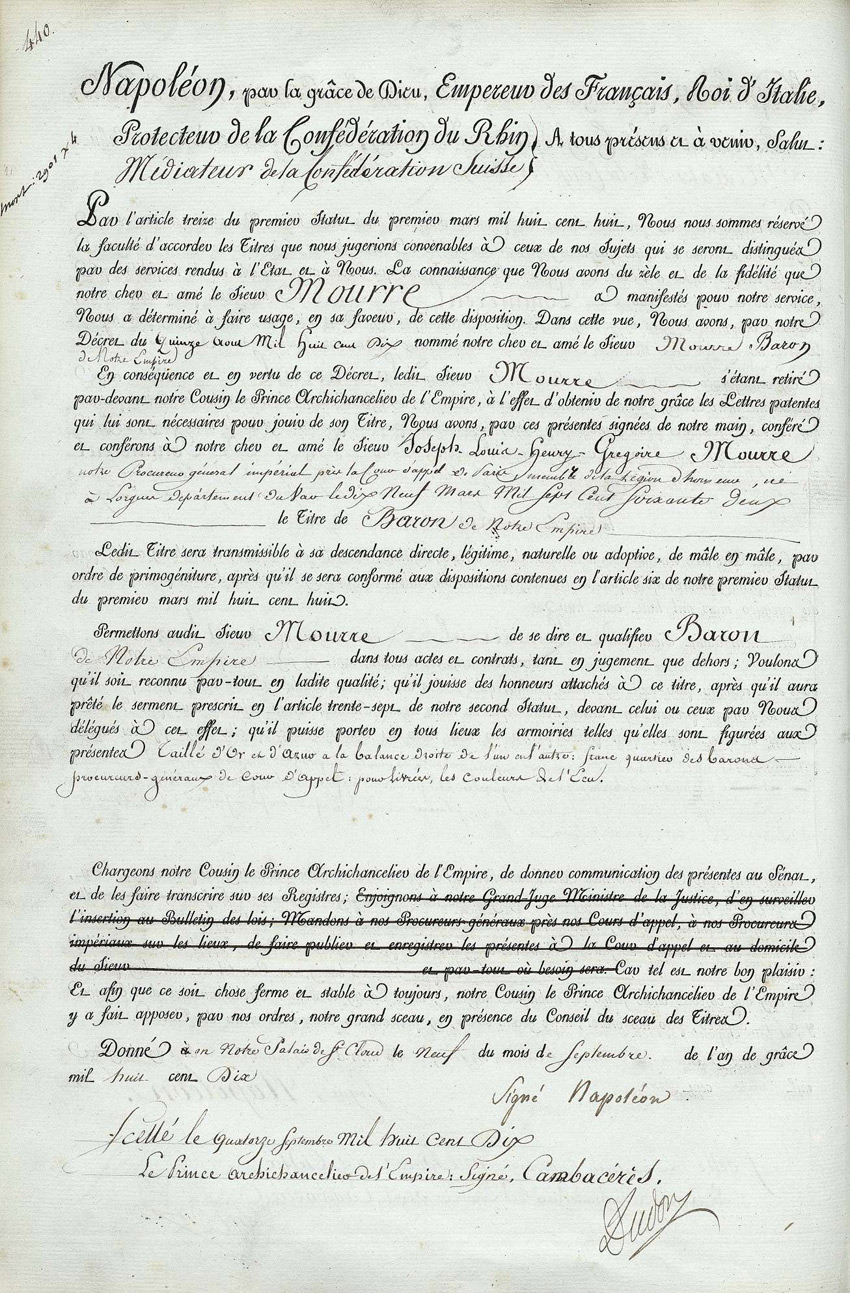 440.
Napoléon, par la grâce de Dieu, Empereur des Français, Roi d'Italie,
Protecteur de la Confédération du Rhin, A tous présens et à venir, Salut :
Médiateur de la Confédération Suisse,
Par l'article treize du premier Statut du premier mars mil huit cent huit, Nous nous sommes réservé
la faculté d'accorder les Titres que nous jugerions convenables à ceux de nos Sujets qui se seront distingués
par des services rendus à l'Etat et à Nous. La connaissance que Nous avons du zèle et de la fidélité que
notre cher et amé le Sieur Mourre a manifestés pour notre service,
Nous a déterminé à faire usage, en sa faveur, de cette disposition. Dans cette vue, Nous avons, par notre
Décret du quinze aout Mil huit cent Dix nommé notre cher et amé le Sieur Mourre Baron
de Notre Empire
En conséquence et en vertu de ce Décret, ledit Sieur Mourre s'étant retiré
par-devant notre Cousin le Prince Archichancelier de l'Empire, à l'effet d'obtenir de notre grâce les Lettres patentes
qui lui sont nécessaires pour jouir de son Titre, Nous avons, par ces présentes signées de notre main, conféré
et conférons à notre cher et amé le Sieur Joseph Louis Henry Grégoire Mourre
notre Procureur général impérial près la Cour d'appel de Paris, membre de la Légion d'honneur, né
à Lorgues departement du Var le dix Neuf Mars Mil Sept Cent Soixante deux
le Titre de Baron de Notre Empire
Ledit Titre sera transmissible à sa descendance directe, légitime, naturelle ou adoptive, de mâle en mâle, par
ordre de primogéniture, après qu'il se sera conformé aux dispositions contenues en l'article six de notre premier Statut
du premier mars mil huit cent huit.
Permettons audit Sieur Mourre de se dire et qualifier Baron
de Notre Empire dans tous actes et contrats, tant en jugement que dehors ; Voulons
qu'il soit reconnu par-tout en ladite qualité ; qu'il jouisse des honneurs attachés à ce titre, après qu'il aura
prêté le serment prescrit en l'article trente-sept de notre second Statut, devant celui ou ceux par Nous
délégués à cet effet ; qu'il puisse porter en tous lieux les armoiries telles qu'elles sont figurées aux
présentes Taillé d'Or et d'Azur a la balance droite de l'un en l'autre : franc quartier des barons
procureurs-généraux de Cour d'Appel : pour livrées, les couleurs de l'Ecu.
Chargeons notre Cousin le Prince Archichancelier de l'Empire, de donner communication des présentes au Sénat,
et de les faire transcrire sur ses Registres ; Enjoignons à notre Grand-Juge Ministre de la Justice, d'en surveiller
l'insertion au Bulletin des lois ; Mandons à nos Procureurs-généraux près nos Cours d'appel, à nos Procureurs
impériaux sur les lieux, de faire publier et enregistrer les présentes à la Cour d'appel et au domicile
du Sieur et par-tout où besoin sera. Car tel est notre bon plaisir :
Et afin que ce soit chose ferme et stable à toujours, notre Cousin le Prince Archichancelier de l'Empire
y a fait apposer, par nos ordres, notre grand sceau, en présence du Conseil du sceau des Titres.
Donné en Notre Palais de St Cloud le Neuf du mois de Septembre. de l'an de grâce
mil huit cent Dix
Signé Napoléon
Scellé le quatorze septembre Mil huit Cent Dix
Le Prince archichancelier de l'Empire : Signé, Cambacérès.
Dudon